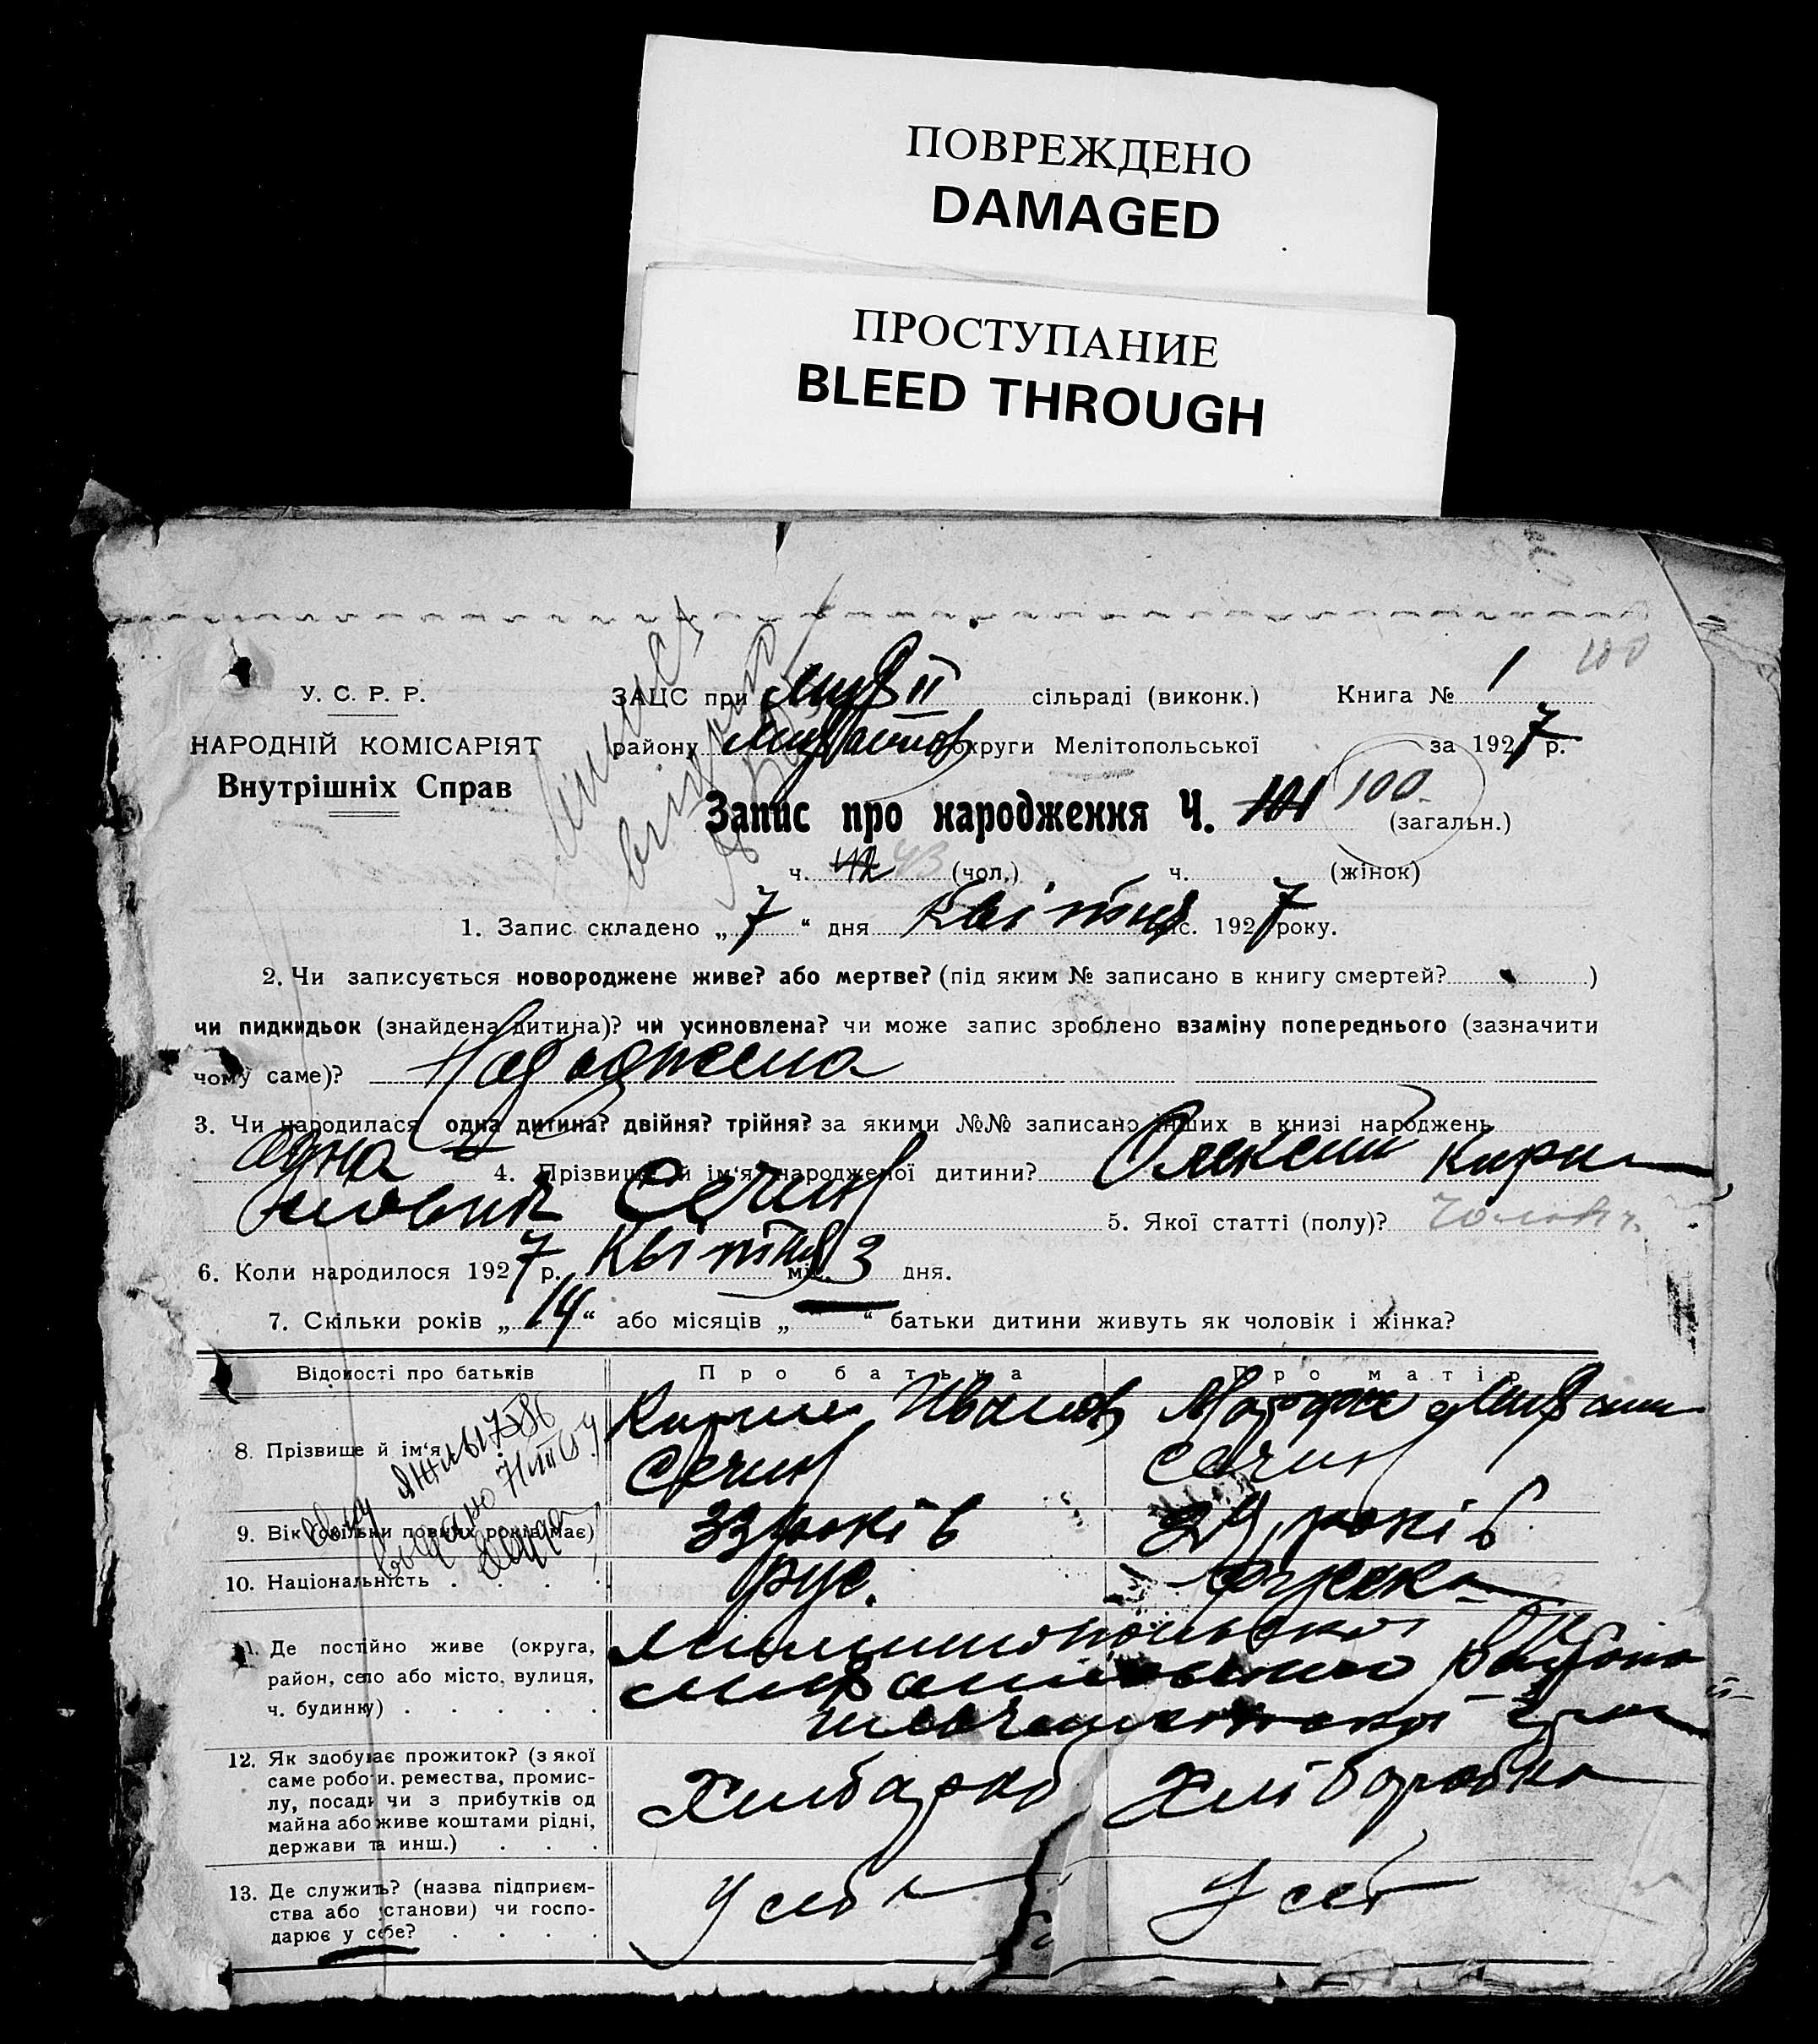 ПОВРЕЖДЕНО
DAMAGED
ПРОСТУПАНИЕ
BLEED THROUGH
100
У. С. Р. Р.
НАРОДНІЙ КОМІСАРІЯТ
Внутрішніх Справ
ЗАЦС при II сільраді (виконк.) Книга № 1
району округи Мелітопольської за 1927 р.
Запис про народження Ч. 101 100 (загальн.)
ч. 42 43 (чол.) ч. (жінок)
1. Запис складено „ 7 “ дня Квітня міс. 1927 року.
2. Чи записується новороджене живе? або мертве? (під яким № записано в книгу смертей? )
чи пидкидьок (знайдена дитина)? чи усиновлена? чи може запис зроблено взаміну попереднього (зазначити
чому саме)? Народжена
3. Чи народилася одна дитина? двійня? трійня? за якими №№ записано інших в книзі народжень
одна 4. Прізвище й ім'я народженої дитини? Олексий Кири
лович Сечин 5. Якої статті (полу)? чоловіч.
6. Коли народилося 1927 р. Квітня міс. 3 дня.
7. Скільки років „ 14 “ або місяців „ — “ батьки дитини живуть як чоловік і жінка?
Відомості про батьків Про батька Про матір
8. Прізвище й ім'я Кирил Иванов
Сечин Сечин
9. Вік (скільки повних років має) 33 років 34 років
10. Національність . . . . рус. руска
11. Де постійно живе (округа,
район, село або місто, вулиця,
ч. будинку) . . . . . Района
12. Як здобуває прожиток? (з якої
саме роботи, ремества, промис-
лу, посади чи з прибутків од
майна або живе коштами рідні,
держави та инш.) . . . Хлібороб Хліборобка
13. Де служить? (назва підприєм-
ства або установи) чи госпо-
дарює у себе? . . . . У себе У себ